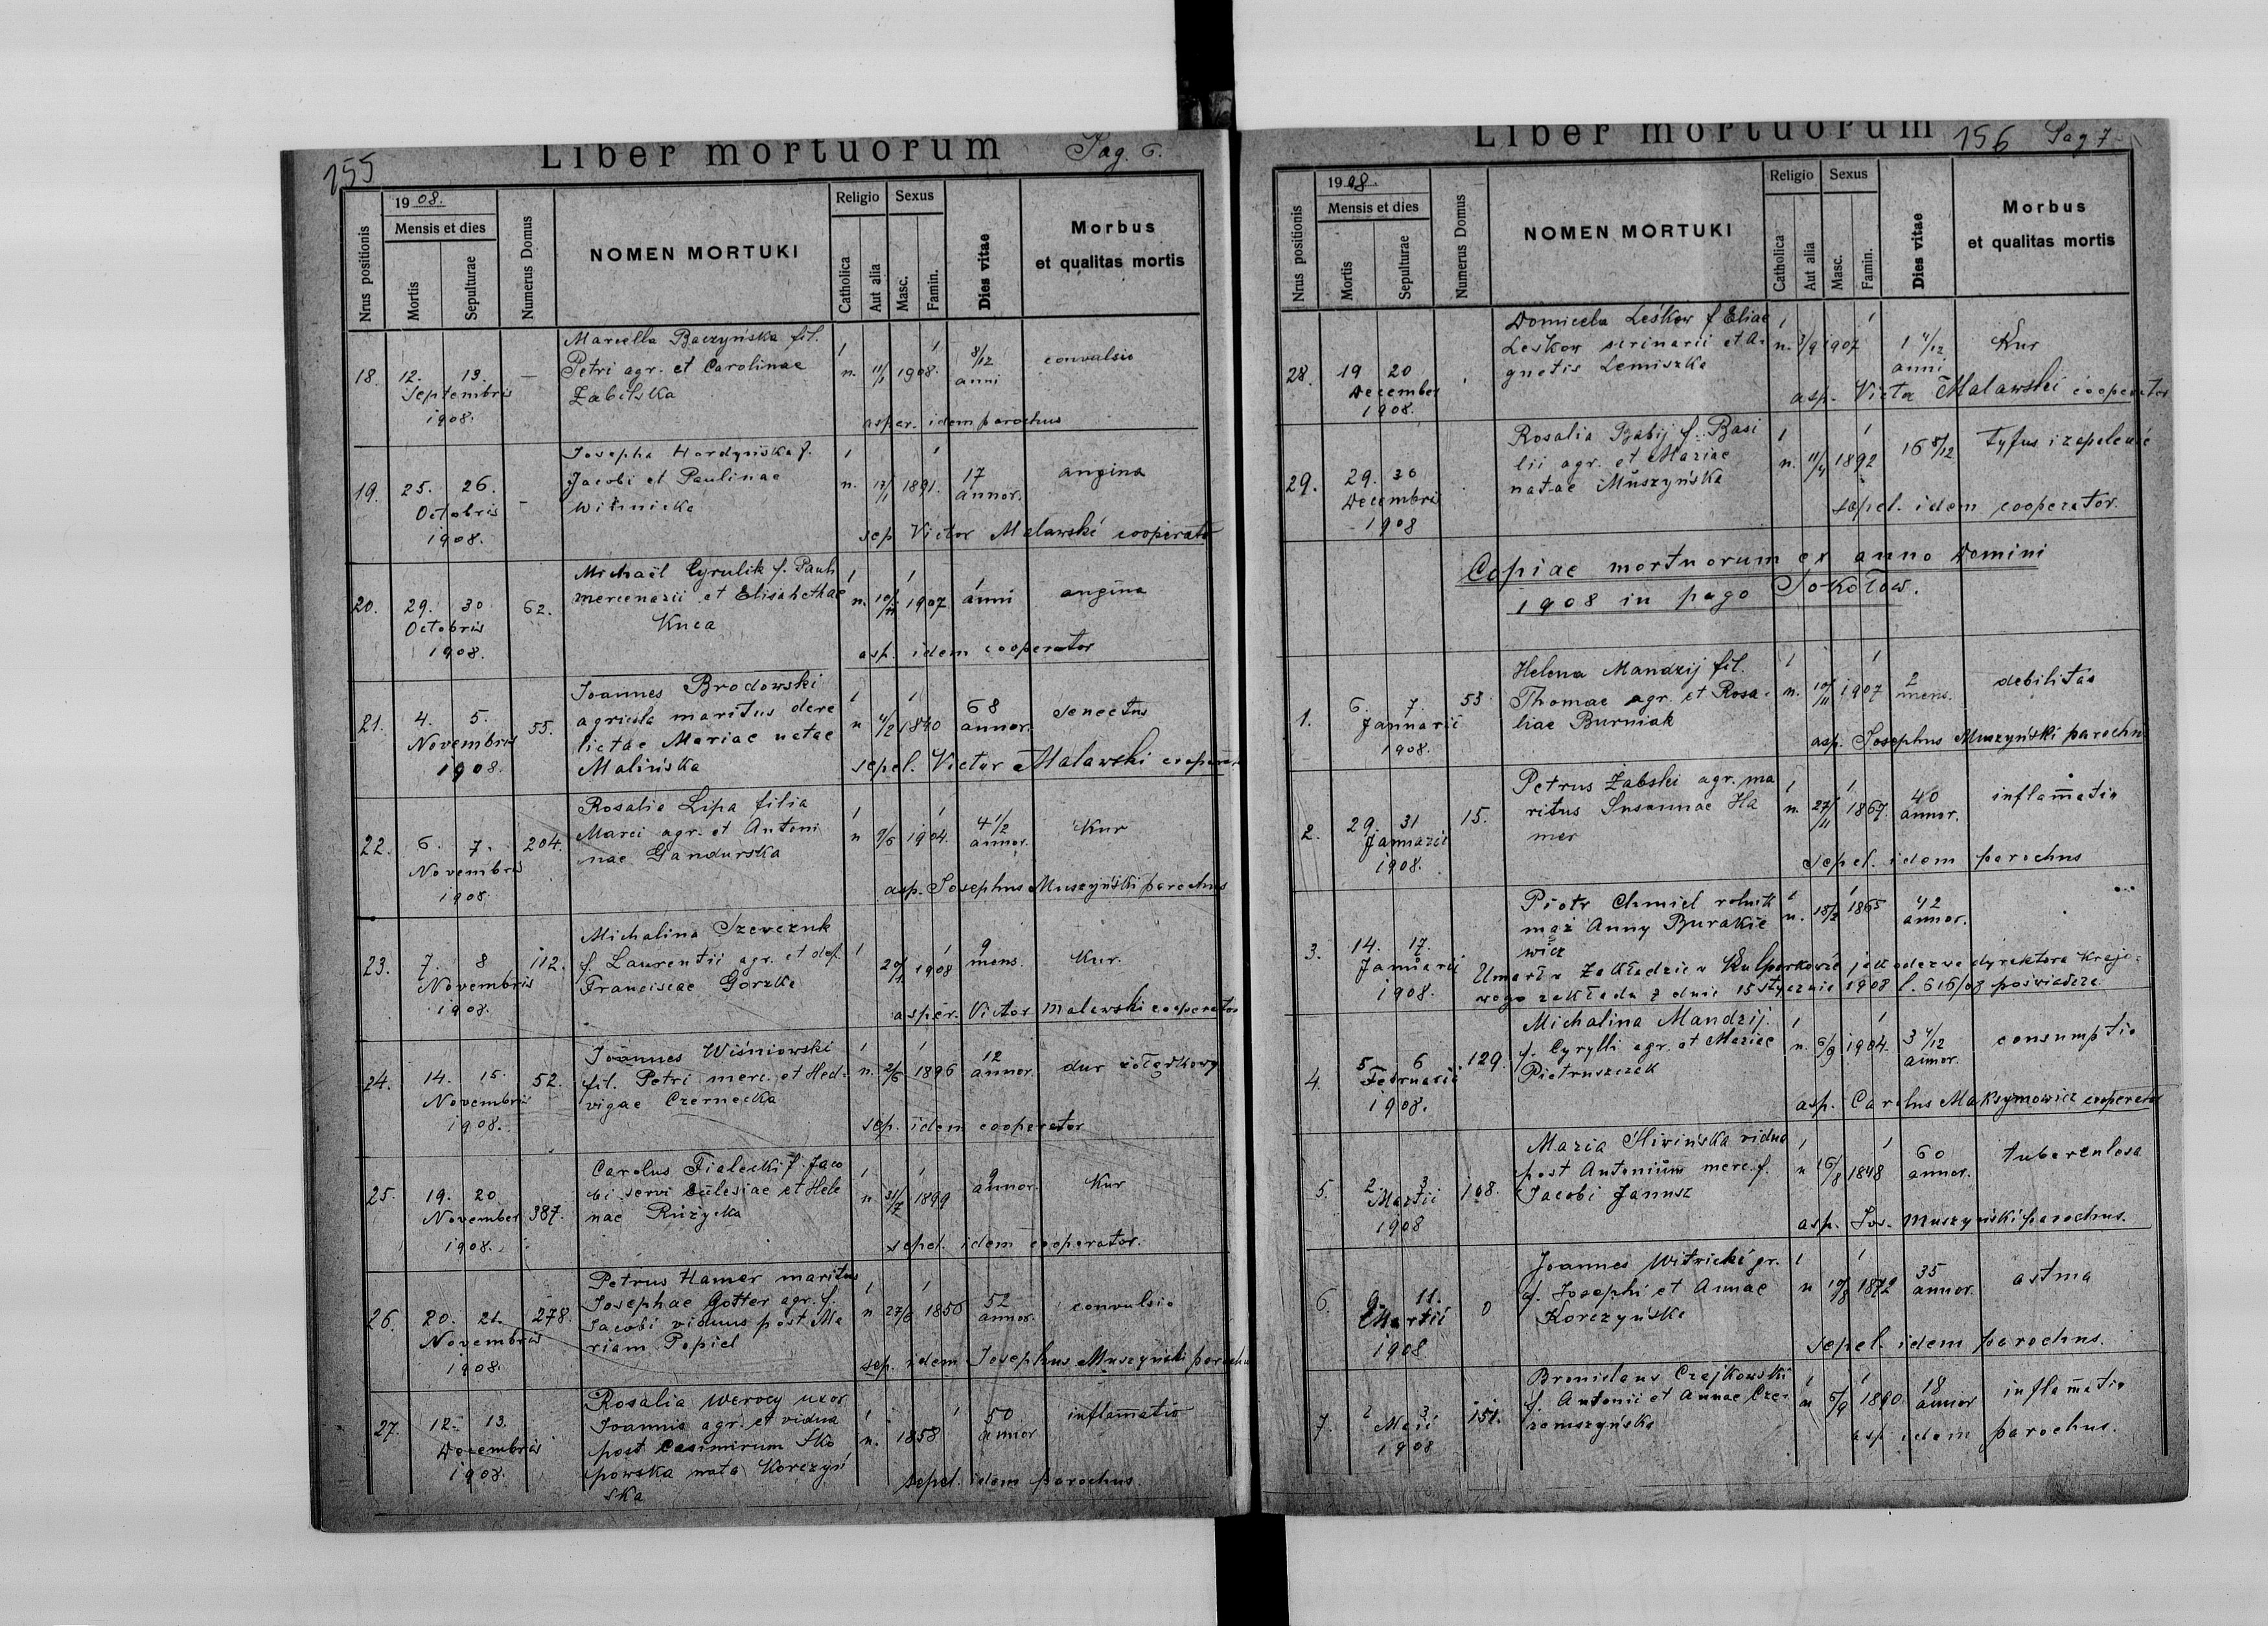 155
Liber mortuorum Pag. 6.
Nrus positionis
1908.
Mensis et dies
Mortis
Sepulturae
Numerus Domus
NOMEN MORTUKI
Religio
Catholica
Aut alia
Sexus
Masc.
Famin.
Dies vitae
Morbus
et qualitas mortis
Marcella Baczyńska fil.
Petri agr. et Carolinae
Zabilska
18. 12. 13. — 1 n. 11/1 1908. 1 8/12 anni convulsio
Septembris
1908.
asper. idem parochus
Josepha Hordyńska f.
Jacobi et Paulinae
Witwicka
19. 25. 26. — 1 n. 1891. 1 17 annor. angina
Octobris
1908.
sep Victor Malawski cooperator
Michaël Cyrulik f. Pauli
mercenarii et Elisabethae
Knea
20. 29. 30 62. 1 n. 1907 1 1 anni angina
Octobris
1908.
asp. idem cooperator
Joannes Brodowski
agricola maritus dere
lictae Mariae natae
Malińska
21. 4. 5. 55. 1 n 4/2 1840 1 68 annor. senectus
Novembris
1908.
sepel. Victor Malawski cooperator
Rosalia Lipa filia
Marci agr. et Antoni
nae Gandurska
22. 6. 7. 204. 1 n 9/6 1904. 1 4 1/2 annor. Kur
Novembris
1908.
asp. Josephus Muszyński parochus
Michalina Szewczuk
f. Laurentii agr. et def.
Franciscae Gorzke
23. 7. 8 112. 1 20/1 1908 1 9 mens. Kur.
Novembris
1908.
asper. Victor Malawski cooperator
Joannes Wiśniowski
fil. Petri merc. et Hed-
vigae Czernecka
24. 14. 15. 52. 1 n. 2/6 1896 1 12 annor. dur żołądkowy
Novembris
1908.
sep. idem cooperator
Carolus Fialecki f. Jaco
bi servi Eclesiae et Hele
nae Różycka
25. 19. 20 387. 1 n 31/7 1899 1 9 annor. Kur
November
1908.
sepel. idem cooperator.
Petrus Hamer maritus
Josephae Gotter agr. f.
Jacobi viduus post Ma
riam Popiel
26. 20. 21. 278. 1 n 27/6 1856 1 52 annor. convulsio
Novembris
1908.
sep. idem Josephus Muszyński parochus
Rosalia Werocy uxor
Joannis agr. et vidua
post Casimirum Sko
powska nata Korczyń
ska
27. 12. 13. 1 n. 1858 1 50 annor inflam̄atio
Decembris
1908.
sepel. idem parochus.
Liber mortuorum 156 Pag 7
Nrus positionis
1908.
Mensis et dies
Mortis
Sepulturae
Numerus Domus
NOMEN MORTUKI
Religio
Catholica
Aut alia
Sexus
Masc.
Famin.
Dies vitae
Morbus
et qualitas mortis
Domicela Leśkow f Eliae
Leskow serinarii et A-
gnetis Lemiszka
28. 19 20 1 n. 3/9 1907 1 1 4/12 anni Kur
December
1908.
asp. Victor Malawski cooperator
Rosalia Babij f. Basi
lii agr. et Mariae
natae Muszyńska
29. 29. 30 1 n. 11/4 1892 1 16 8/12 tyfus i zapalenie
Decembris
1908
sepel. idem cooperator.
Copiae mortuorum ex anno Domini
1908 in pago Sokołow.
Helena Mandzij fil.
Thomae agr. et Rosa-
liae Burniak
1. 6. 7. 53 1 n. 10/11 1907 1 2 mens. debilitas
Januarii
1908.
asp. Josephus Muszyński parochu
Petrus Żabski agr. ma
ritus Susannae Ha
mer
2. 29. 31 15. 1 n. 27/11 1867. 1 40 annor. inflam̄atio
Januarii
1908.
sepel. idem parochus
Piotr Chmiel rolnik
mąż Anny Burakie
wicz
3. 14. 17. 1 n. 18/2 1865 1 42 annor.
Januarii
1908.
Umarł w Zakładzie w Kulparkowie jak odezwa dyrektora Krajo-
wego zakładu z dnia 15 stycznia 1908 l. 616/08 poświadcza
Michalina Mandzij
f. Cyrylli agr. et Mariae
Pietruszczak
4. 5 6 129. 1 n. 6/9 1904. 1 3 4/12 annor. consumptio
Februarii
1908.
asp. Carolus Maksymowicz cooperator
Maria Hiwińska vidua
post Antonium merc. f.
Jacobi Janusz
5. 2. 3 108. 1 n 16/8 1848 1 60 annor. tuberculosa
Martii
1908
asp. Jos. Muszyński parochus.
Joannes Witwicki gr.
f. Josephi et Annae
Korczyńska
6. 9. 11. 0 1 n 10/8 1872 1 35 annor. astma
Martii
1908
sepel. idem parochus.
Bronislaus Czajkowski
f. Antonii et Annae Cze-
remszyńska
7. 2 3 151. 1 n 5/9 1890. 1 18 annor inflam̄atio
Maii
1908
asp idem parochus.